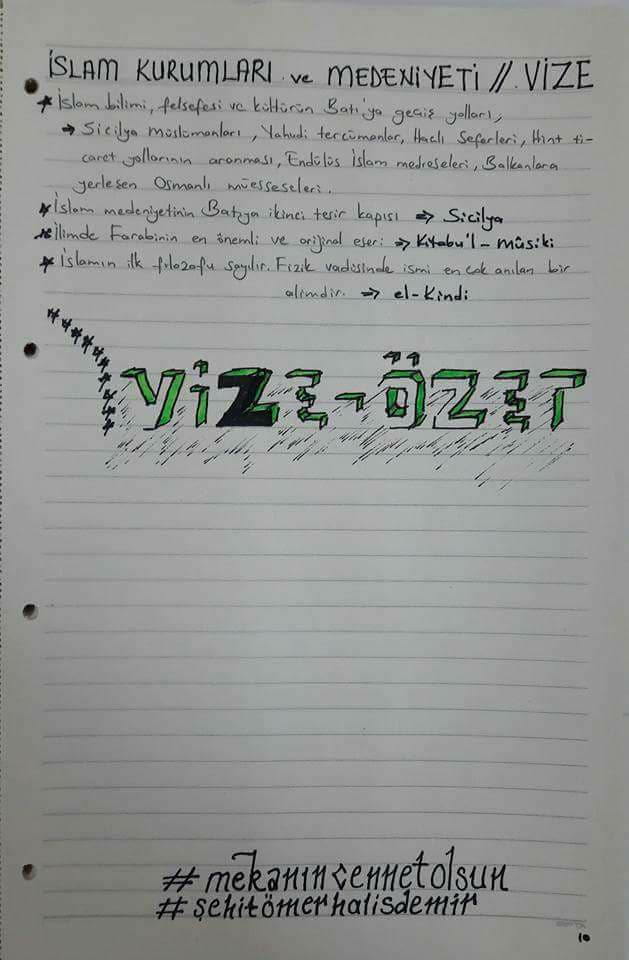 İSLAM KURUMLARI ve MEDENİYETİ // VİZE
* İslam bilimi, felsefesi ve kültürün Batı'ya geçiş yolları,
→ Sicilya müslümanları, Yahudi tercümanlar, Haçlı Seferleri, Hint ti-
caret yollarının aranması, Endülüs İslam medreseleri, Balkanlara
yerleşen Osmanlı müesseseleri.
* İslam medeniyetinin Batıya ikinci tesir kapısı => Sicilya
* İlimde Farabinin en önemli ve orijinal eseri => Kitabu'l-Mûsiki
* İslamın ilk filozofu sayılır. Fizik vadisinde ismi en çok anılan bir
alimdir. => el-Kindi
VİZE-ÖZET
#mekanıncennetolsun
#şehitömerhalisdemir
10